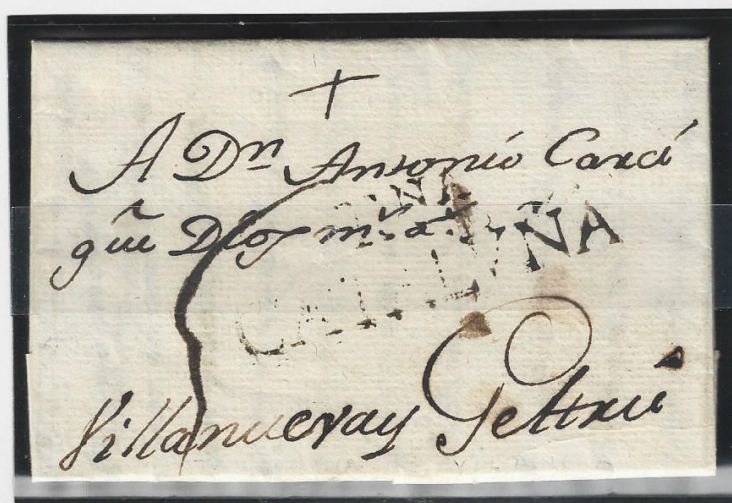 +
A Dn Antonio Carci
que Dios m.s a.s
CATALUÑA
Villanueva y Geltru